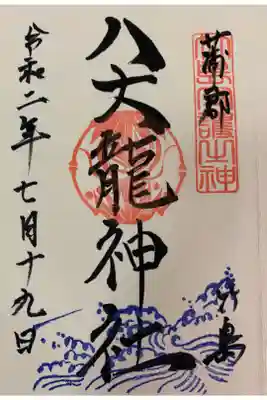 蒲郡
竹島
八大龍神社
令和二年七月十九日